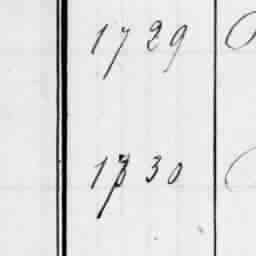 1729
1730